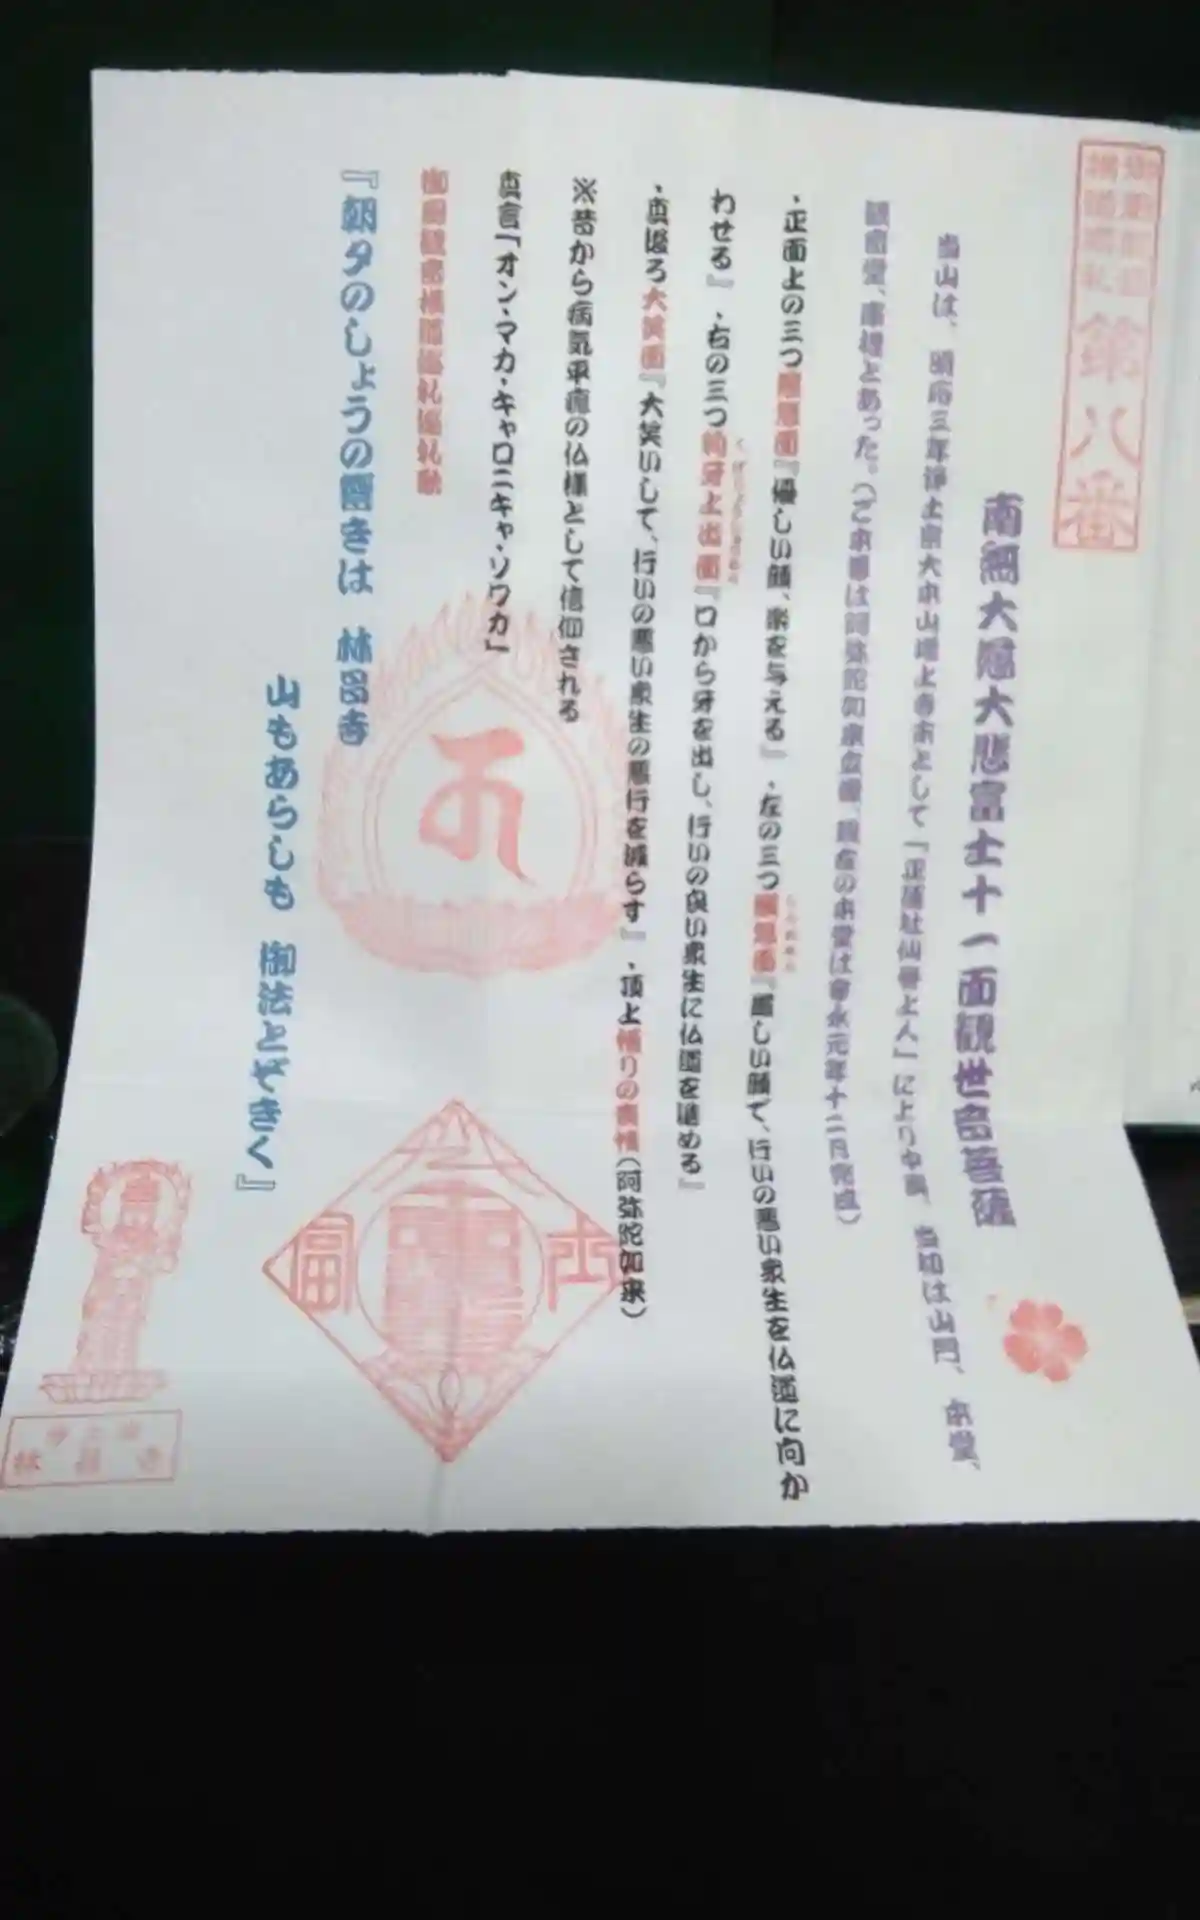 第八番
南無大慈大悲富士十一面観世音菩薩
当山は、明応三年浄土宗大本山増上寺末として『正蓮社仙誉上人』により中興、当初は山門、本堂、
観音堂、庫裡とあった。（ご本尊は阿弥陀如来立像、現在の本堂は宝永元年十二月完成）
・正面上の三つ慈悲面『優しい顔、楽を与える』・左の三つ瞋怒面『厳しい顔で、行いの悪い衆生を仏道に向か
わせる』・右の三つ狗牙上出面『口から牙を出し、行いの良い衆生に仏道を進める』
・真後ろ大笑面『大笑いして、行いの悪い衆生の悪行を減らす』・頂上悟りの表情（阿弥陀如来）
※昔から病気平癒の仏様として信仰される
真言「オン・マカ・キャロニキャ・ソワカ」
御厨観音横道巡礼巡礼歌
『朝夕のしょうの響きは 林昌寺
山もあらしも 御法とぞきく』
富 士